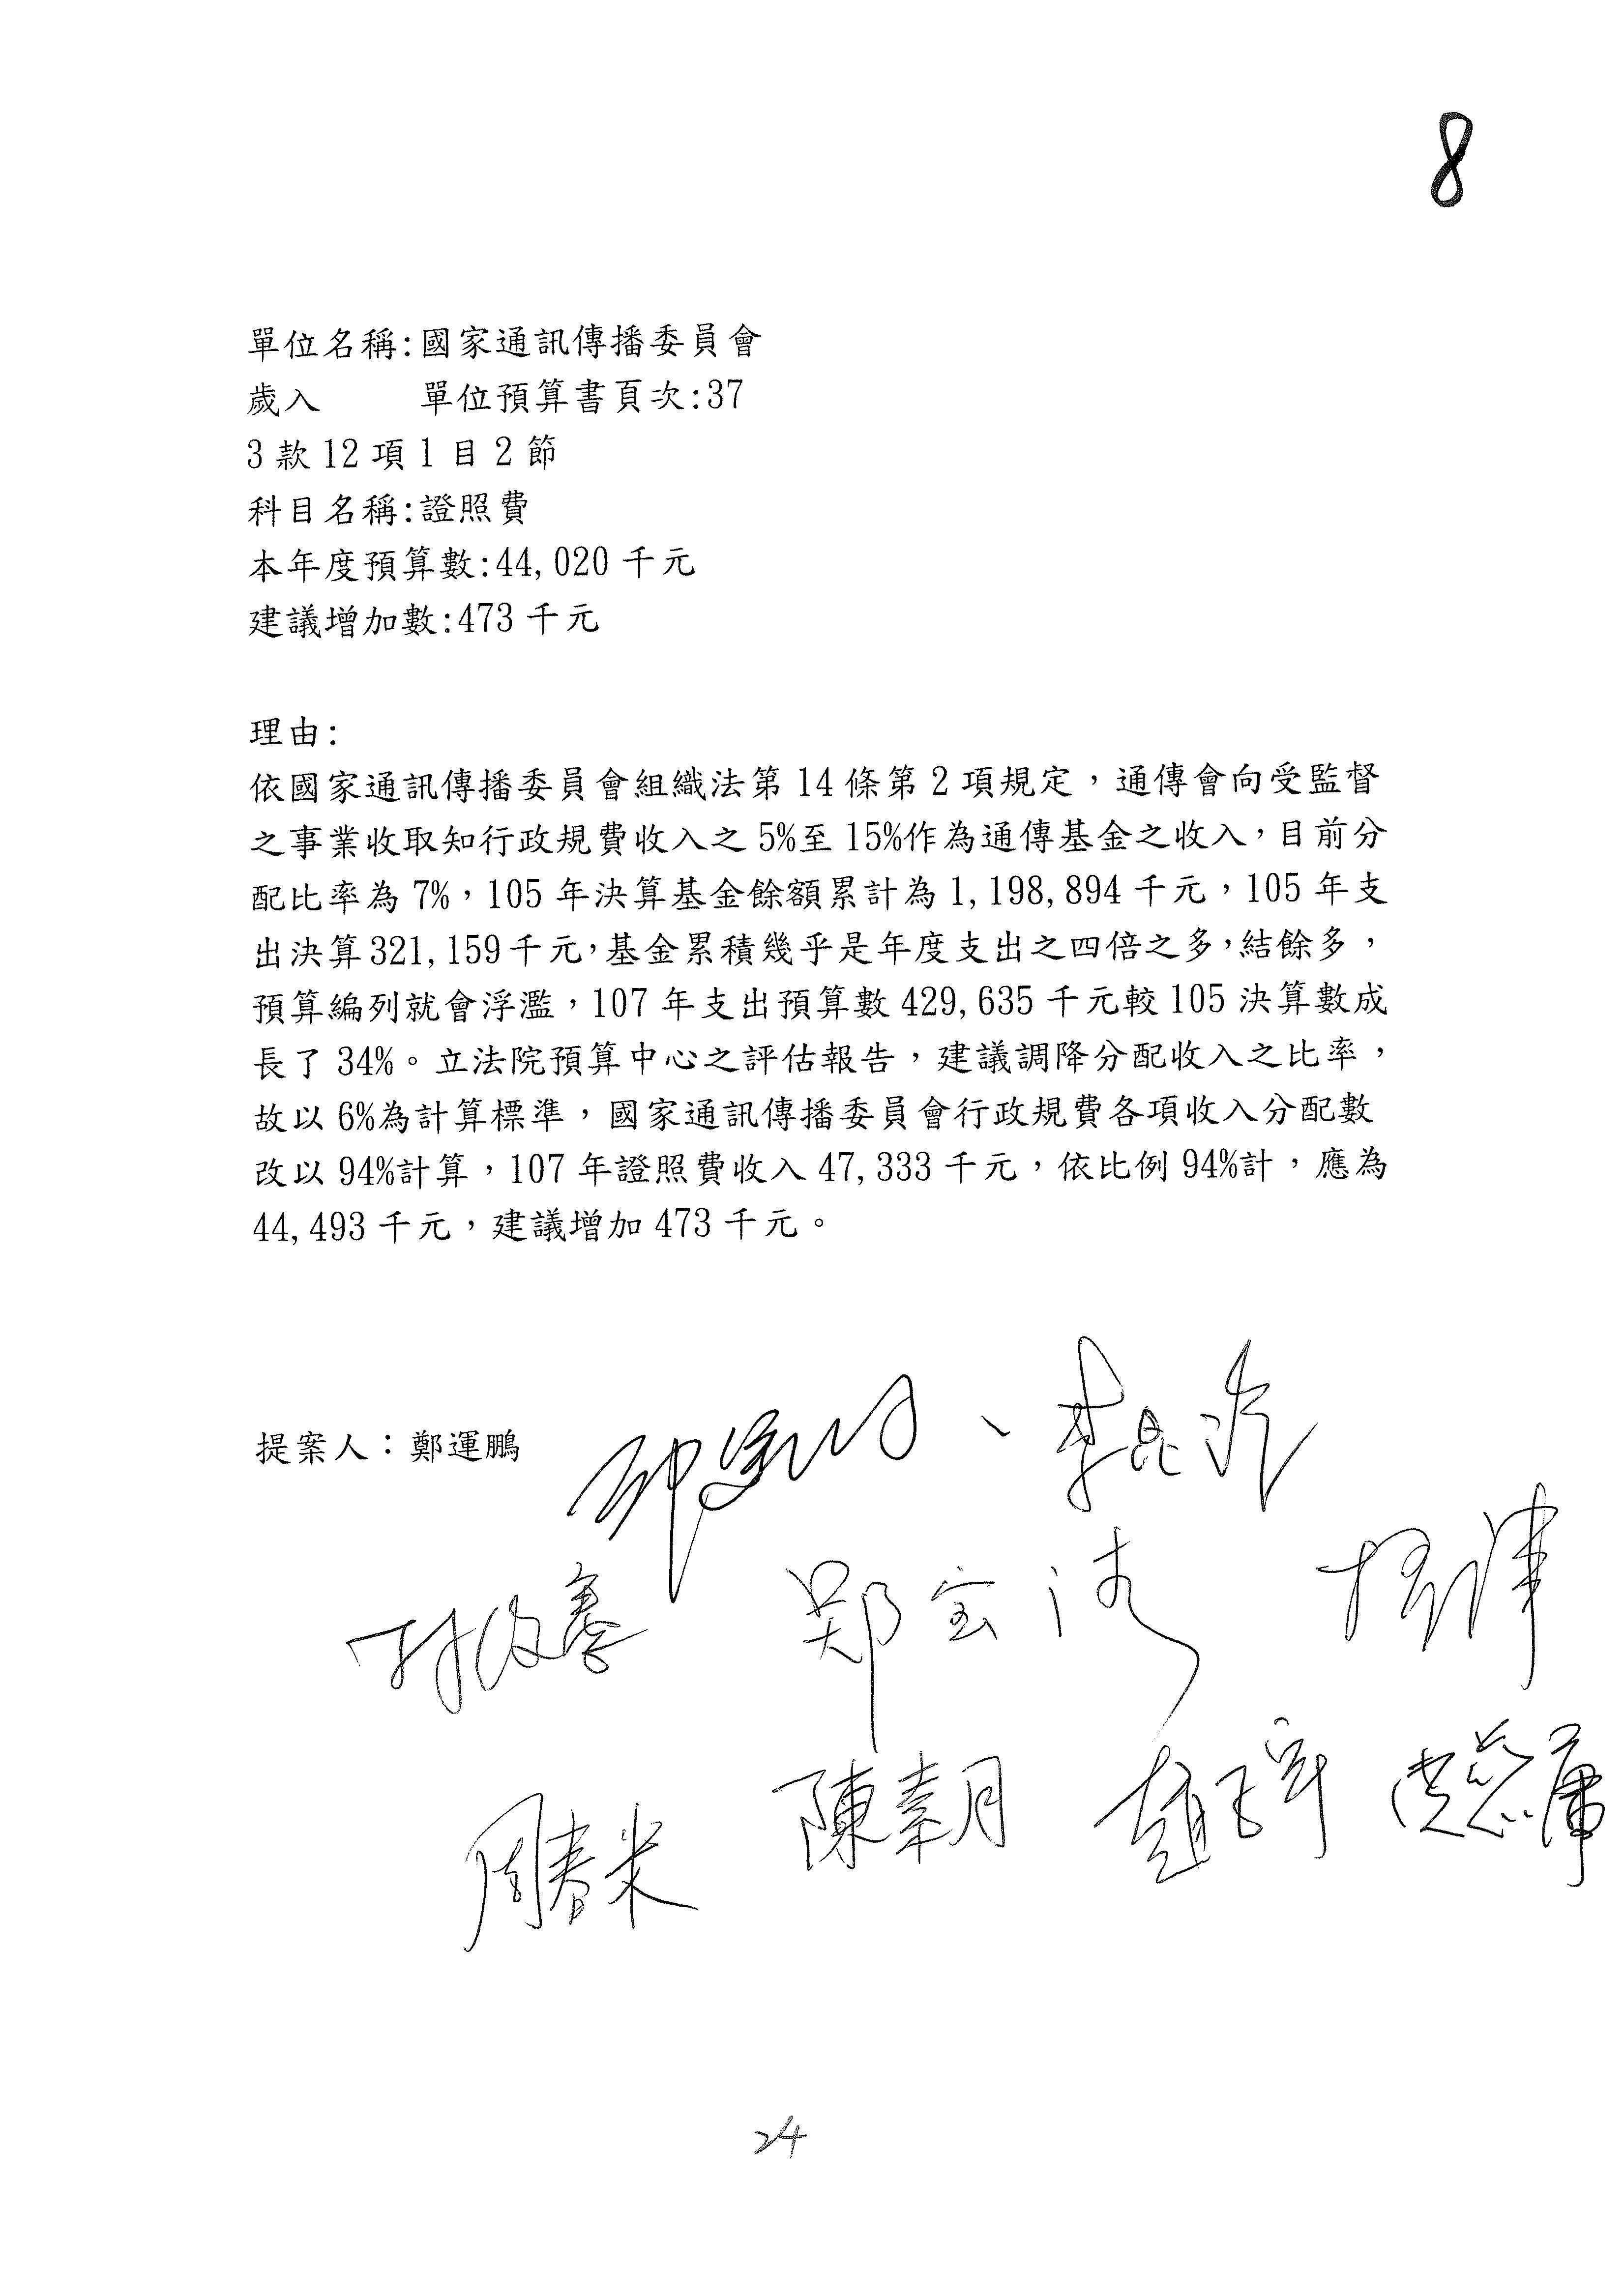 8
單位名稱:國家通訊傳播委員會
歲入 單位預算書頁次:37
3 款 12 項 1 目 2 節
科目名稱:證照費
本年度預算數:44,020 千元
建議增加數:473 千元
理由:
依國家通訊傳播委員會組織法第 14 條第 2 項規定，通傳會向受監督
之事業收取知行政規費收入之 5%至 15%作為通傳基金之收入，目前分
配比率為 7%，105 年決算基金餘額累計為 1,198,894 千元，105 年支
出決算 321,159 千元，基金累積幾乎是年度支出之四倍之多，結餘多，
預算編列就會浮濫，107 年支出預算數 429,635 千元較 105 決算數成
長了 34%。立法院預算中心之評估報告，建議調降分配收入之比率，
故以 6%為計算標準，國家通訊傳播委員會行政規費各項收入分配數
改以 94%計算，107 年證照費收入 47,333 千元，依比例 94%計，應為
44,493 千元，建議增加 473 千元。
提案人：鄭運鵬
李昆澤
鄭宝清
周春米
24